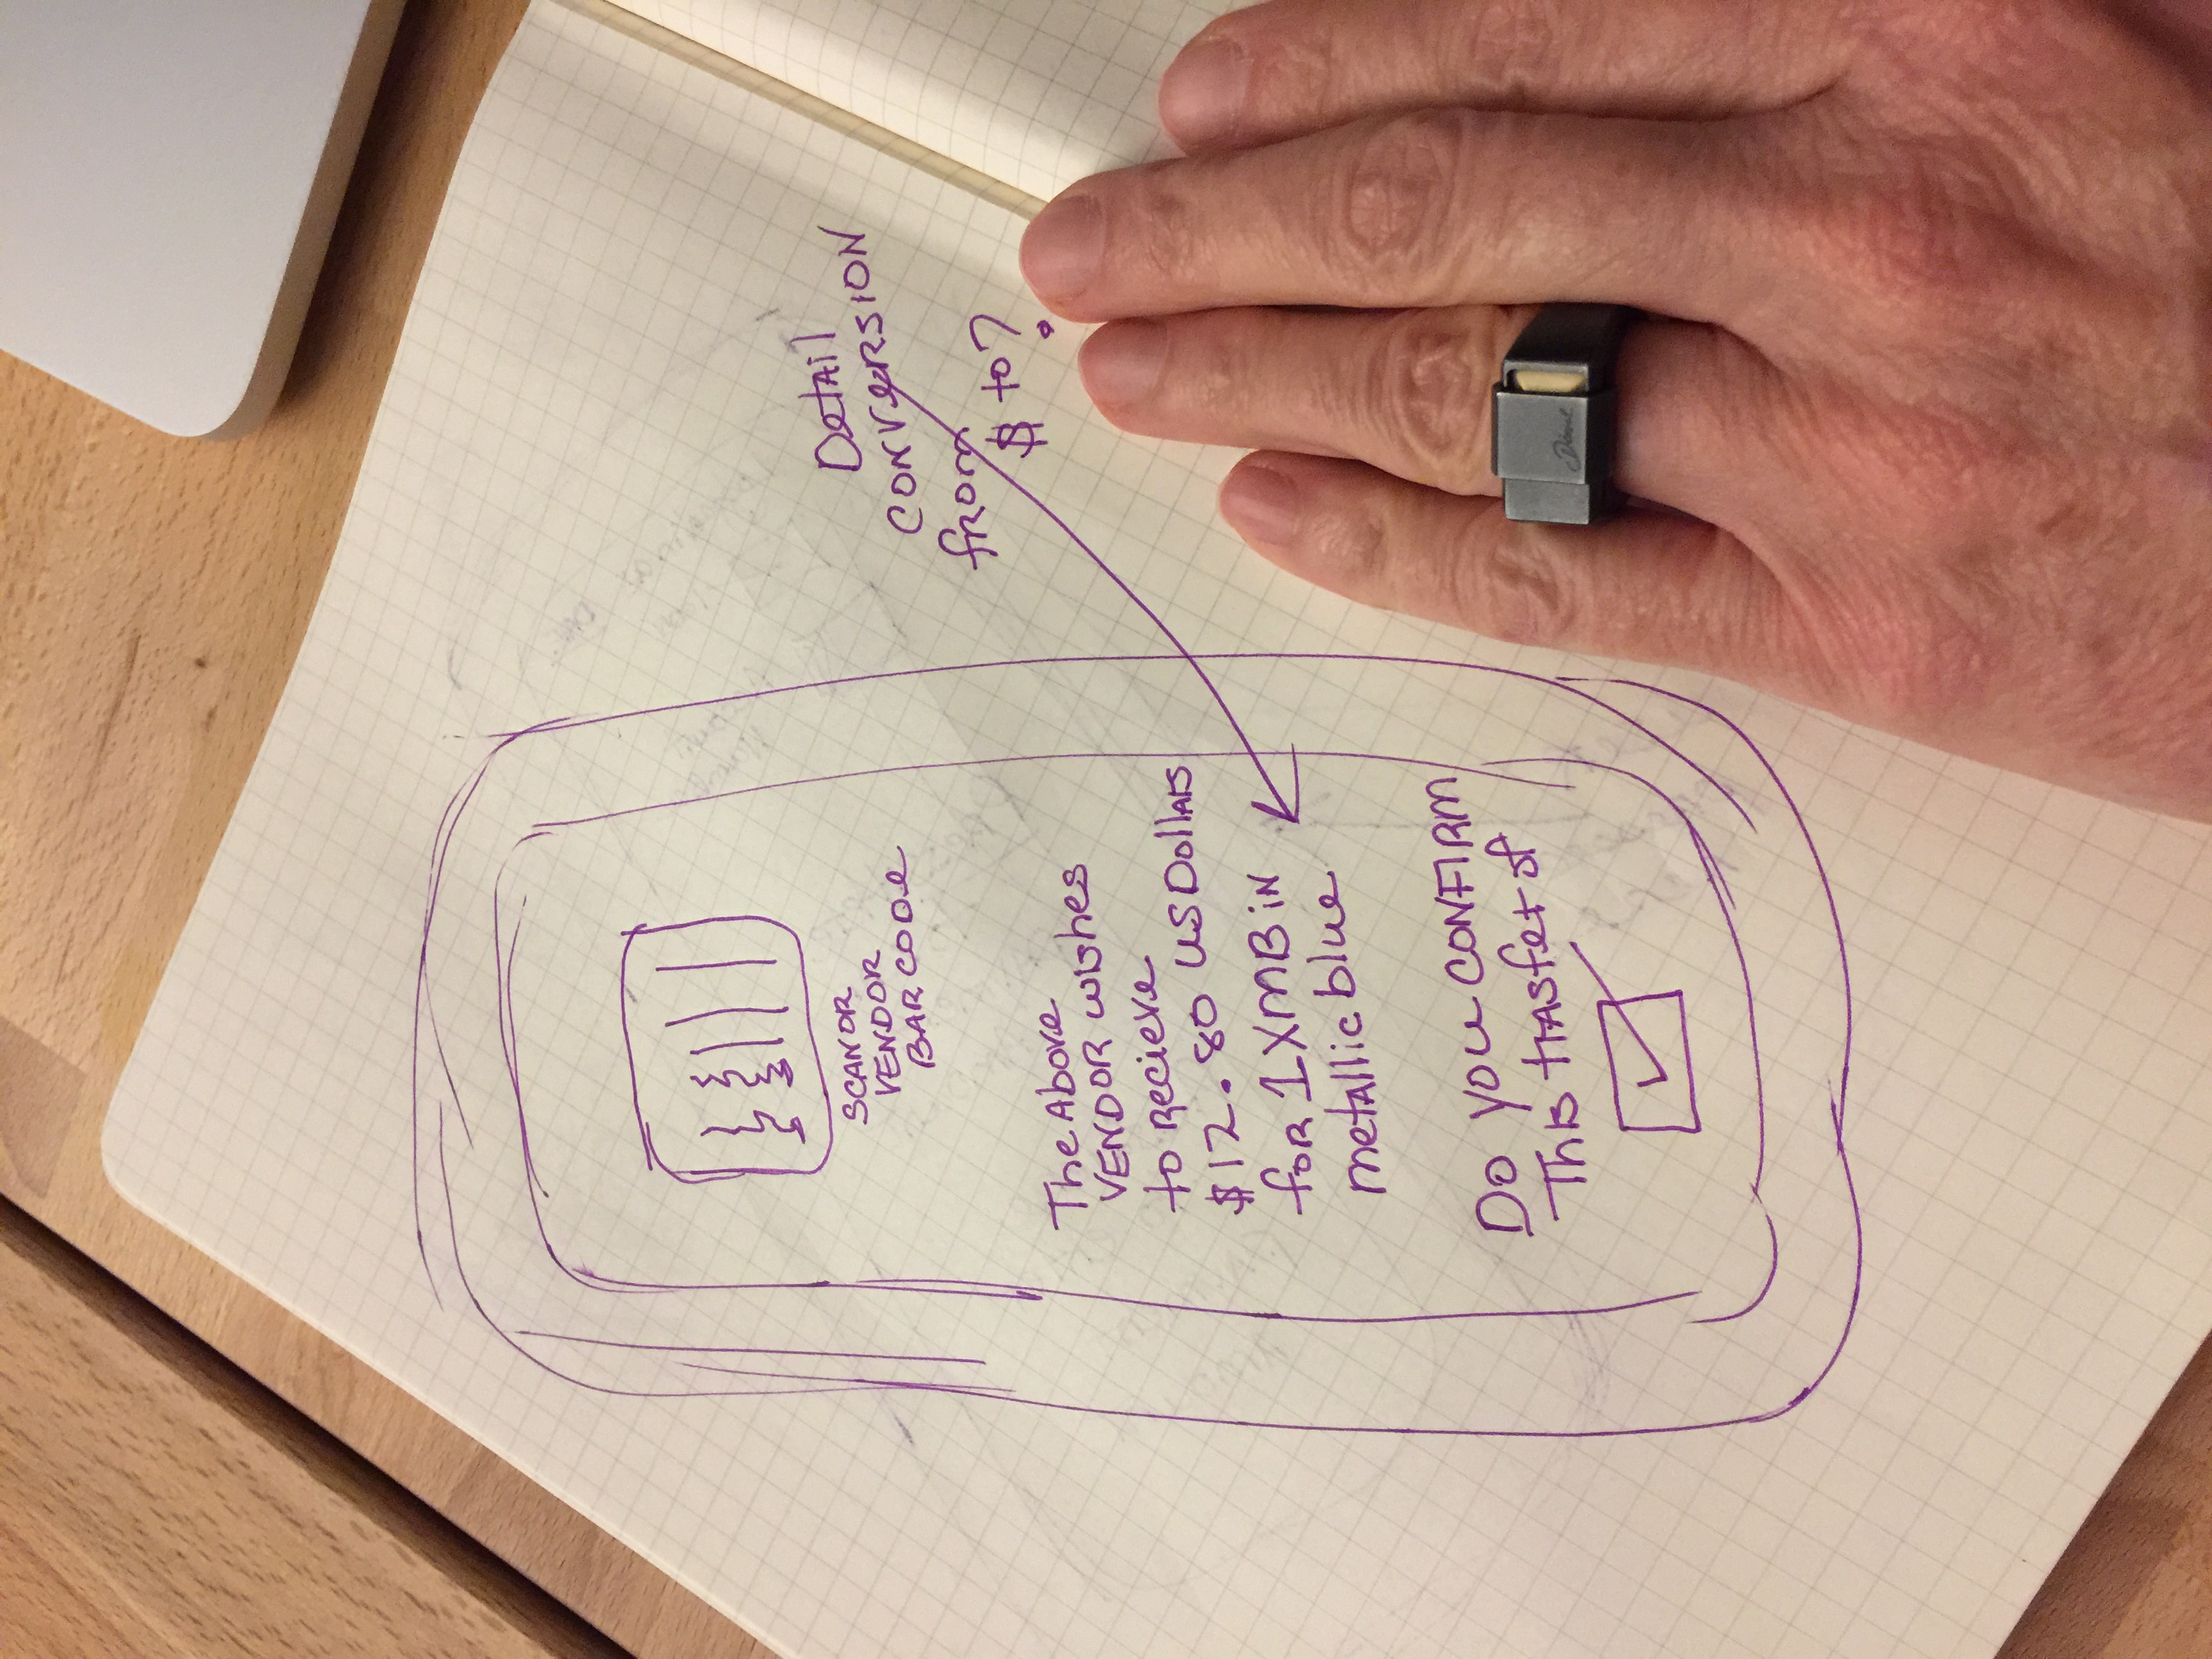 SCAN OR
VENDOR
BARCODe
The Above
VENDOR wishes
to Recieve
$12.80 US Dollars
for 1XMB iN
metallic blue
Do you CONFIRM
This trasfer of
Detail
CONVeRSION
from
$ to ?